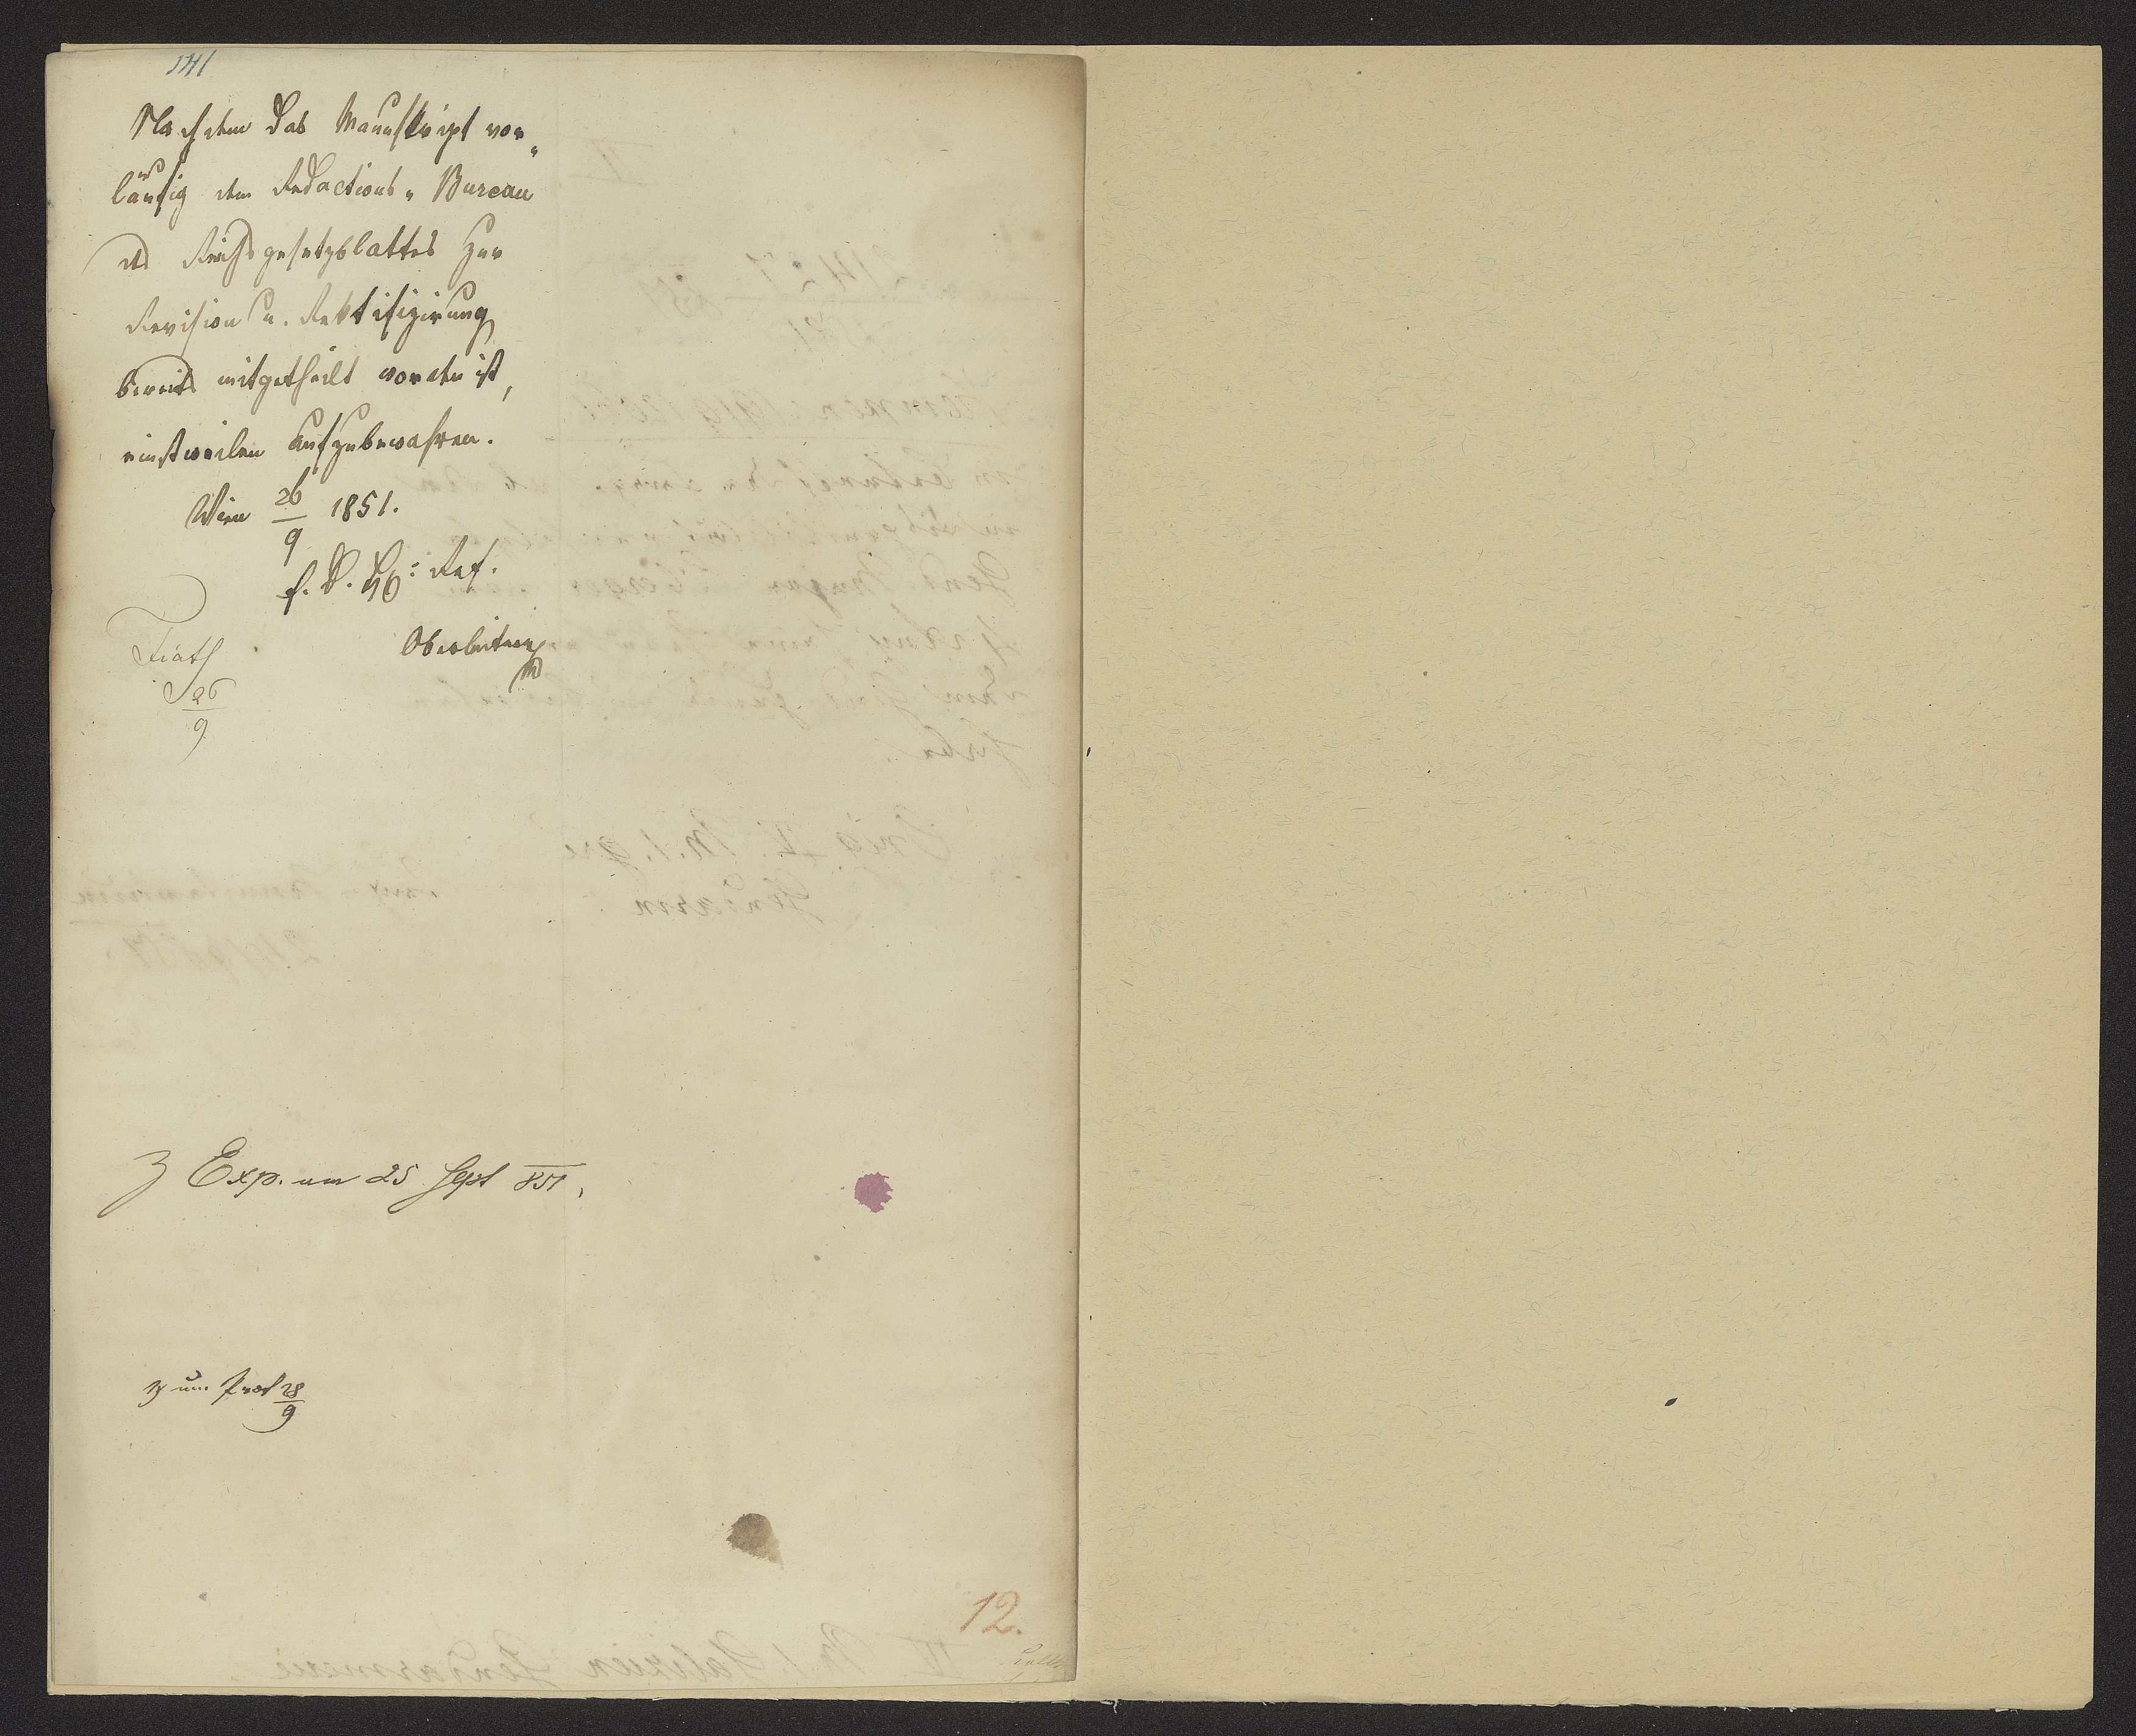 141
Nachdem das Manuskript vor„
läufig dem Redactions„Bureau
des Reichsgesetzblattes zur
Revision u. Rektifizirung
bereits mitgetheilt worden ist,
einstweilen aufzubewahren.
Wien 26/9 1851.
Ref.
Oberleitner
Fiath
26/9
Exp. am 25 Sept 851.
28/9
12.